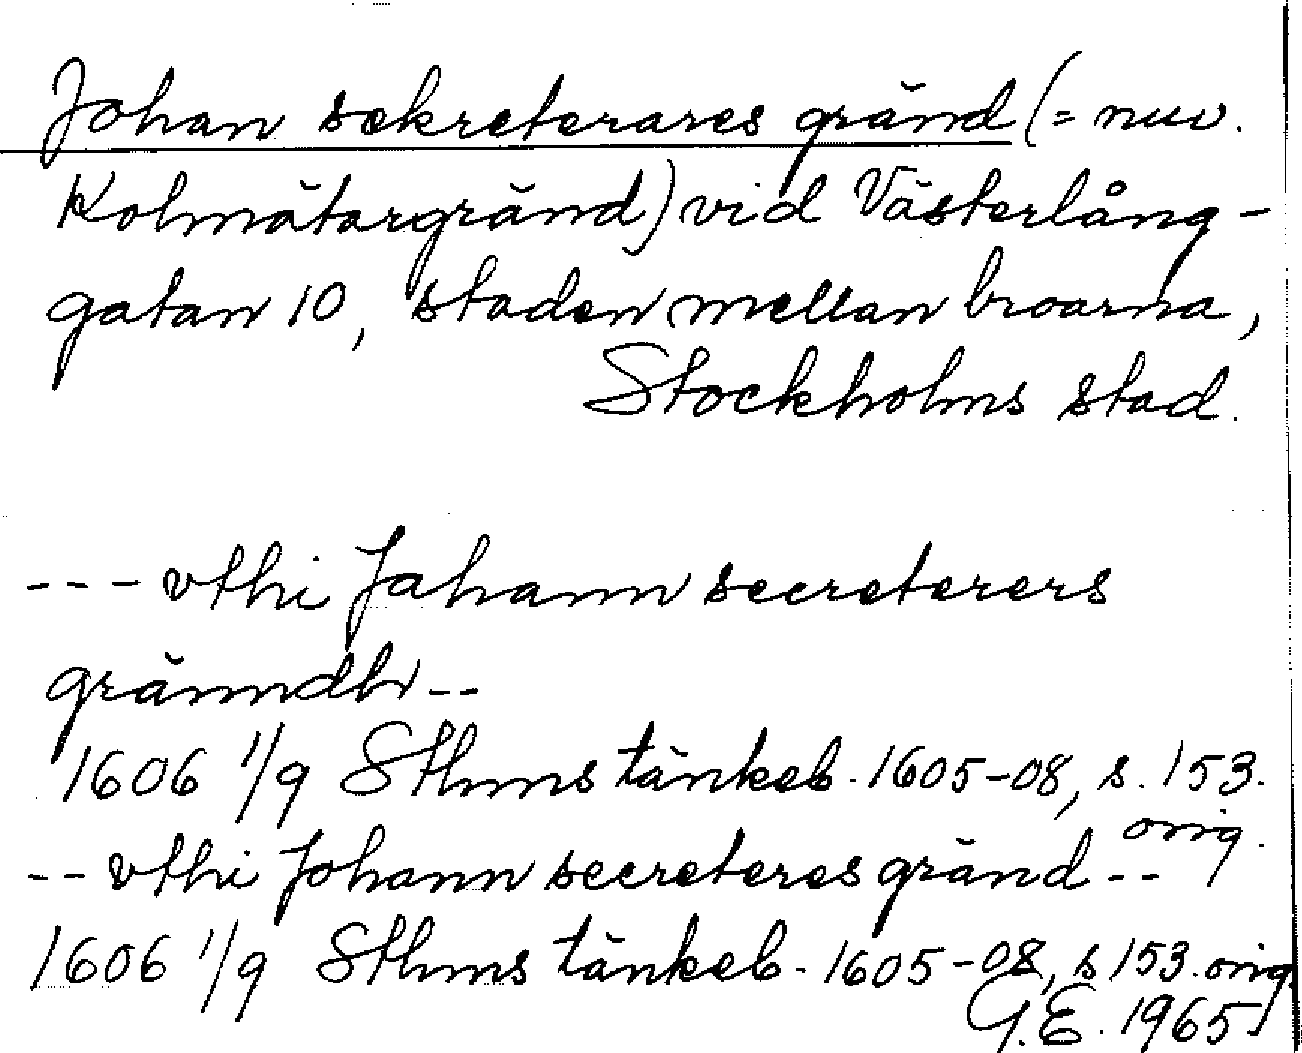 Johan sekreterares gränd (= nuv.
Kolmätargränd) vid Västerlång-
gatan 10, staden mellan broarna,
Stockholms stad.
--- vthi Johann secreterers
gränndh --
1606 1/9 Sthms tänkeb. 1605-08, s. 153.
orig.
-- vthi Johann secreteres gränd --
1606 1/9 Sthms tänkeb. 1605-08, s 153. orig.
G.E. 1965